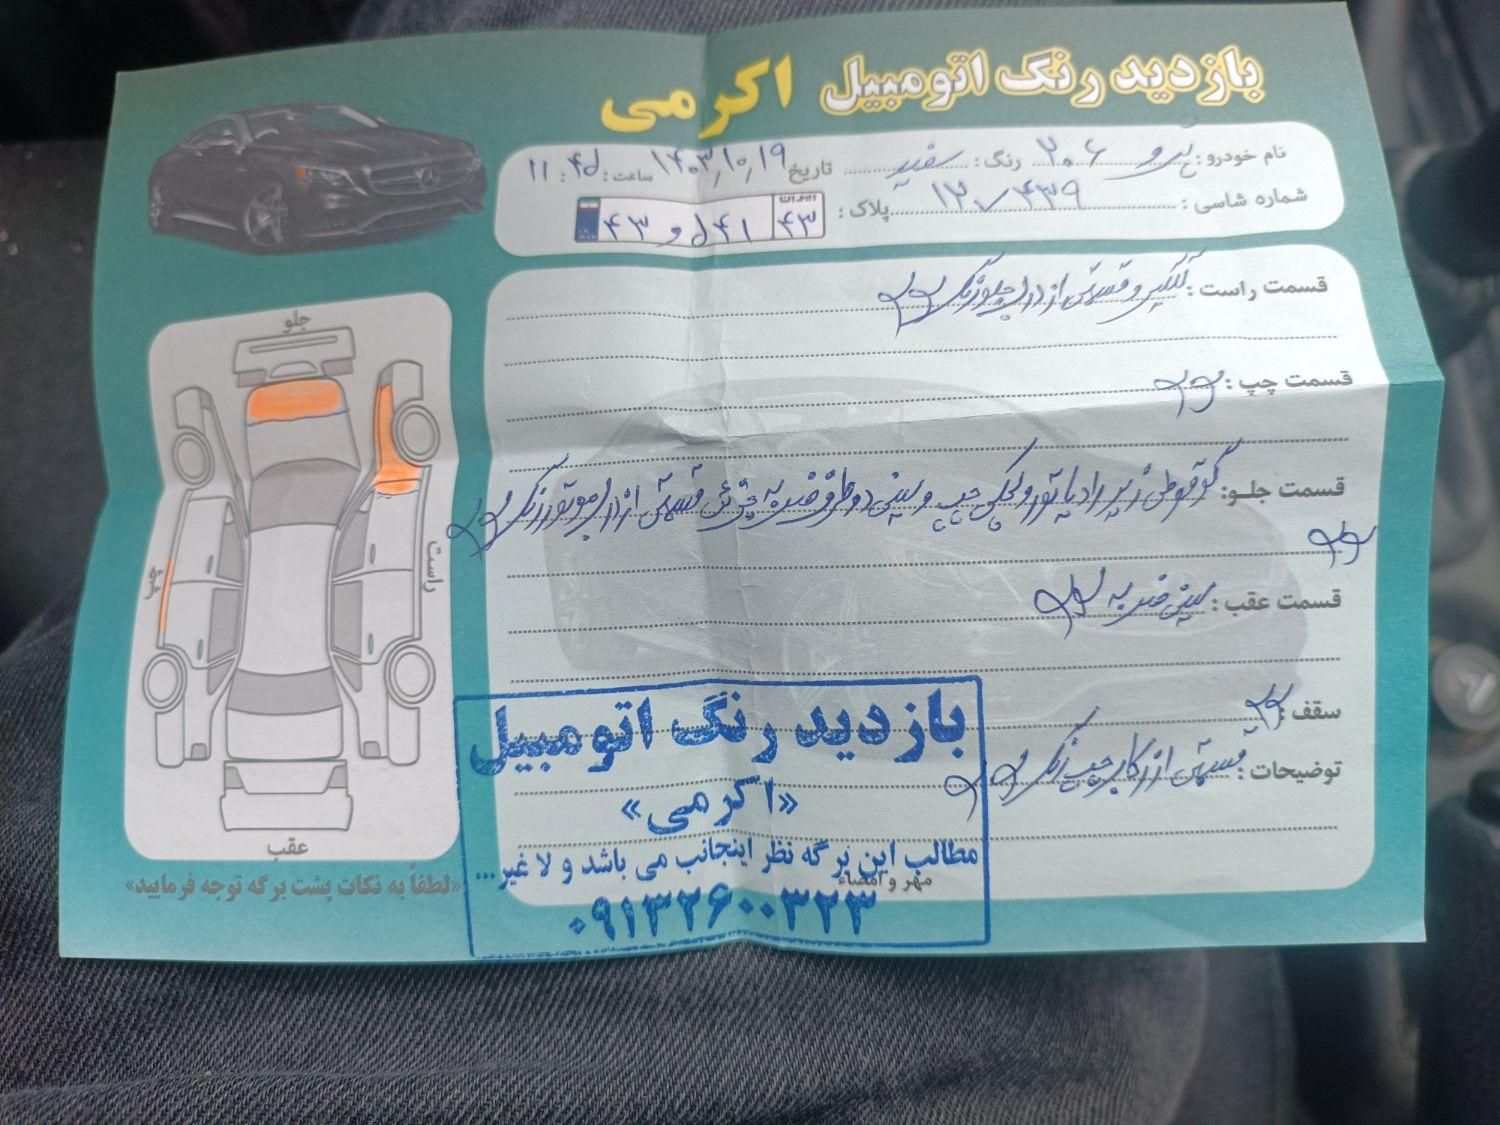 بازدید رنگ اتومبیل اکرمی
نام خودرو: پژو ۲۰۶ رنگ: سفید تاریخ ۱۴۰۳/۱۰/۱۹ ساعت: ۱۱:۴۵
شماره شاسی: پلاک: ۴۳ و ۴۳
قسمت راست: گلگیر و قسمتی از درب جلو رنگ
قسمت چپ:
قسمت جلو: زیر رادیاتور و لچکی چپ و سینی دو طرف ضربه جزئی قسمتی از درب موتور رنگ
قسمت عقب: سینی ضربه
سقف:
توضیحات: قسمتی از رکاب چپ رنگ
مهر و امضاء
جلو
راست
چپ
عقب
«لطفاً به نکات پشت برگه توجه فرمایید»
بازدید رنگ اتومبیل
«اکرمی»
مطالب این برگه نظر اینجانب می باشد و لا غیر...
۰۹۱۳۲۶۰۰۳۲۳